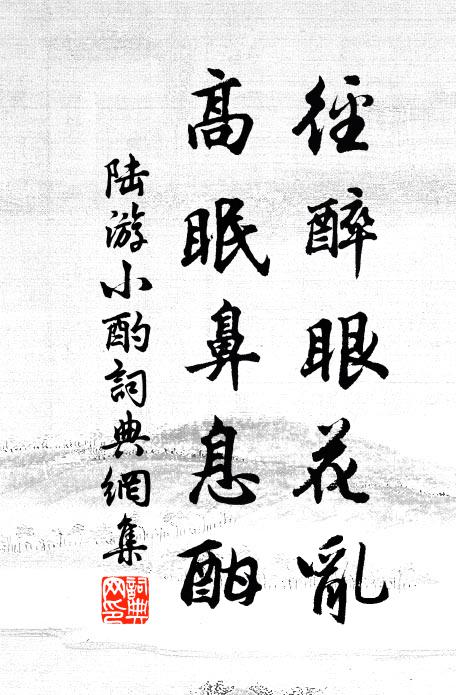 徑醉眼花亂
高眠鼻息酣
陆游小酌詞典網集
詞典网印